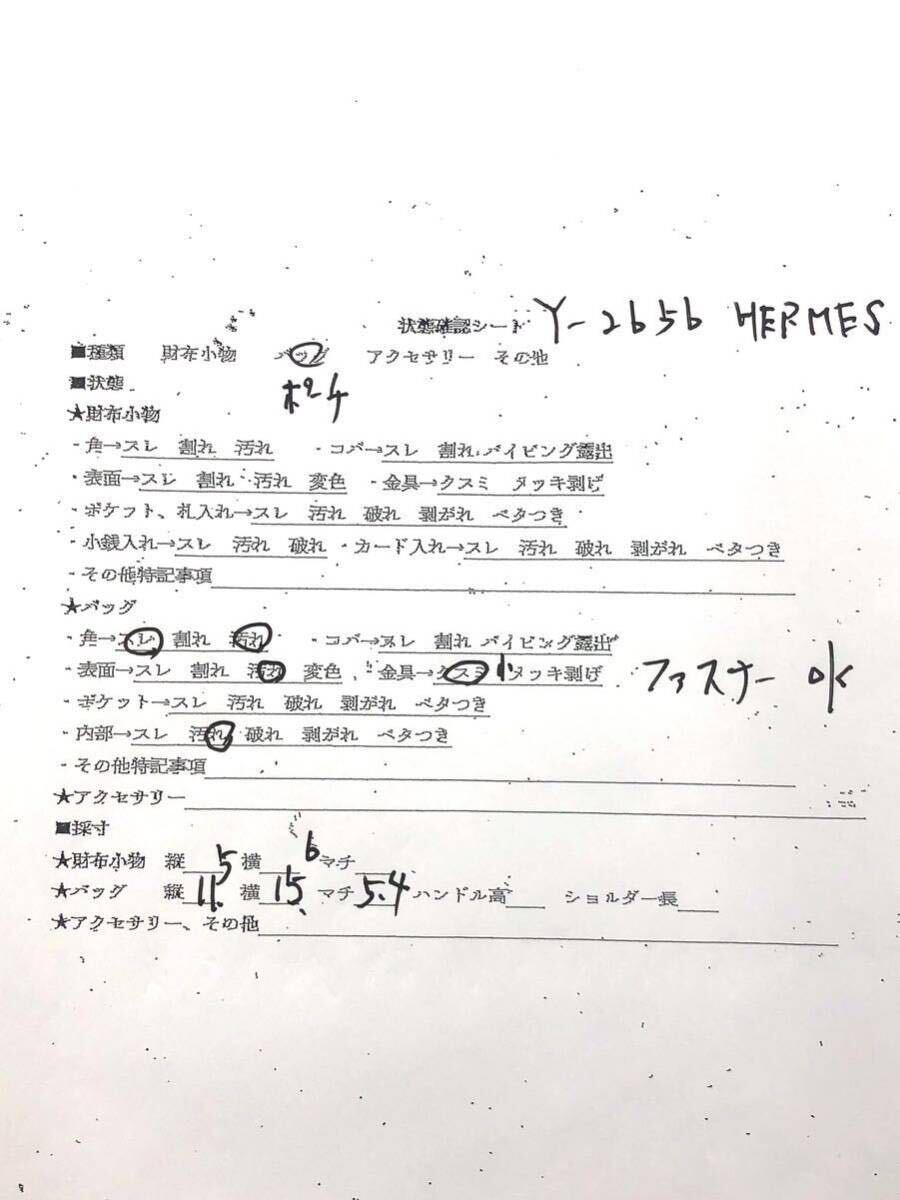 状態確認シート Y-2656 HERMES
■種類 財布小物 バッグ アクセサリー その他
■状態 ポーチ
★財布小物
・角→スレ 割れ 汚れ ・コバ→スレ 割れ パイピング露出
・表面→スレ 割れ 汚れ 変色 ・金具→クスミ メッキ剥げ
・ポケット、札入れ→スレ 汚れ 破れ 剥がれ ベタつき
・小銭入れ→スレ 汚れ 破れ ・カード入れ→スレ 汚れ 破れ 剥がれ ベタつき
・その他特記事項
★バッグ
・角→スレ 割れ 汚れ ・コバ→スレ 割れ パイピング露出
・表面→スレ 割れ 汚れ 変色 ・金具→クスミ 小 メッキ剥げ ファスナー OK
・ポケット→スレ 汚れ 破れ 剥がれ ベタつき
・内部→スレ 汚れ 破れ 剥がれ ベタつき
・その他特記事項
★アクセサリー
■採寸
★財布小物 縦 5 横 6 マチ
★バッグ 縦 11. 横 15. マチ 5.4 ハンドル高 ショルダー長
★アクセサリー、その他